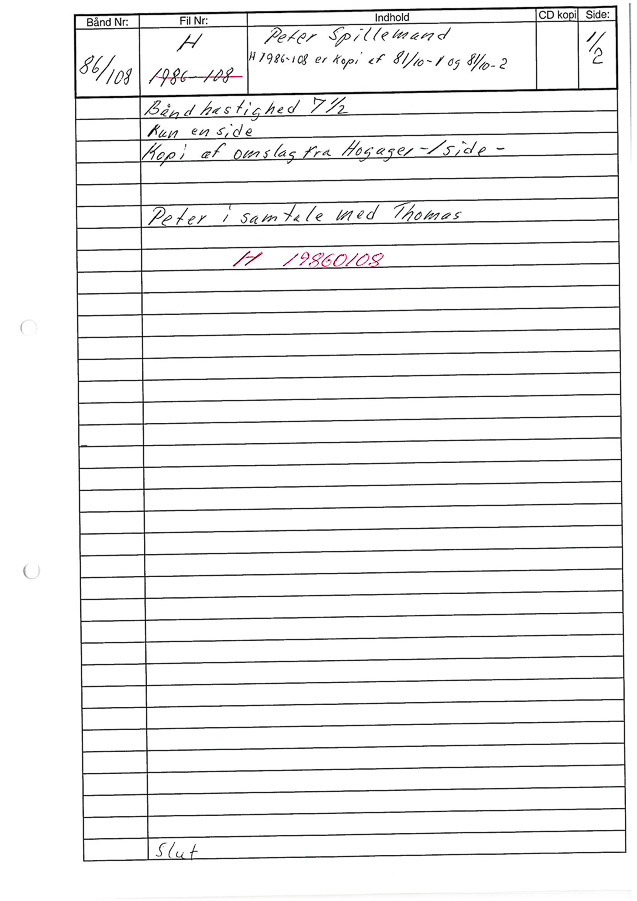 Bånd Nr: Fil Nr: Indhold CD kopi Side:
86/108 H Peter Spillemand 1/2
1986-108 H 1986-108 er kopi af 81/10-1 og 81/10-2
Båndhastighed 7 1/2
Kun en side
Kopi af omslag fra Hogager-/side-
Peter i samtale med Thomas
H 19860108
Slut